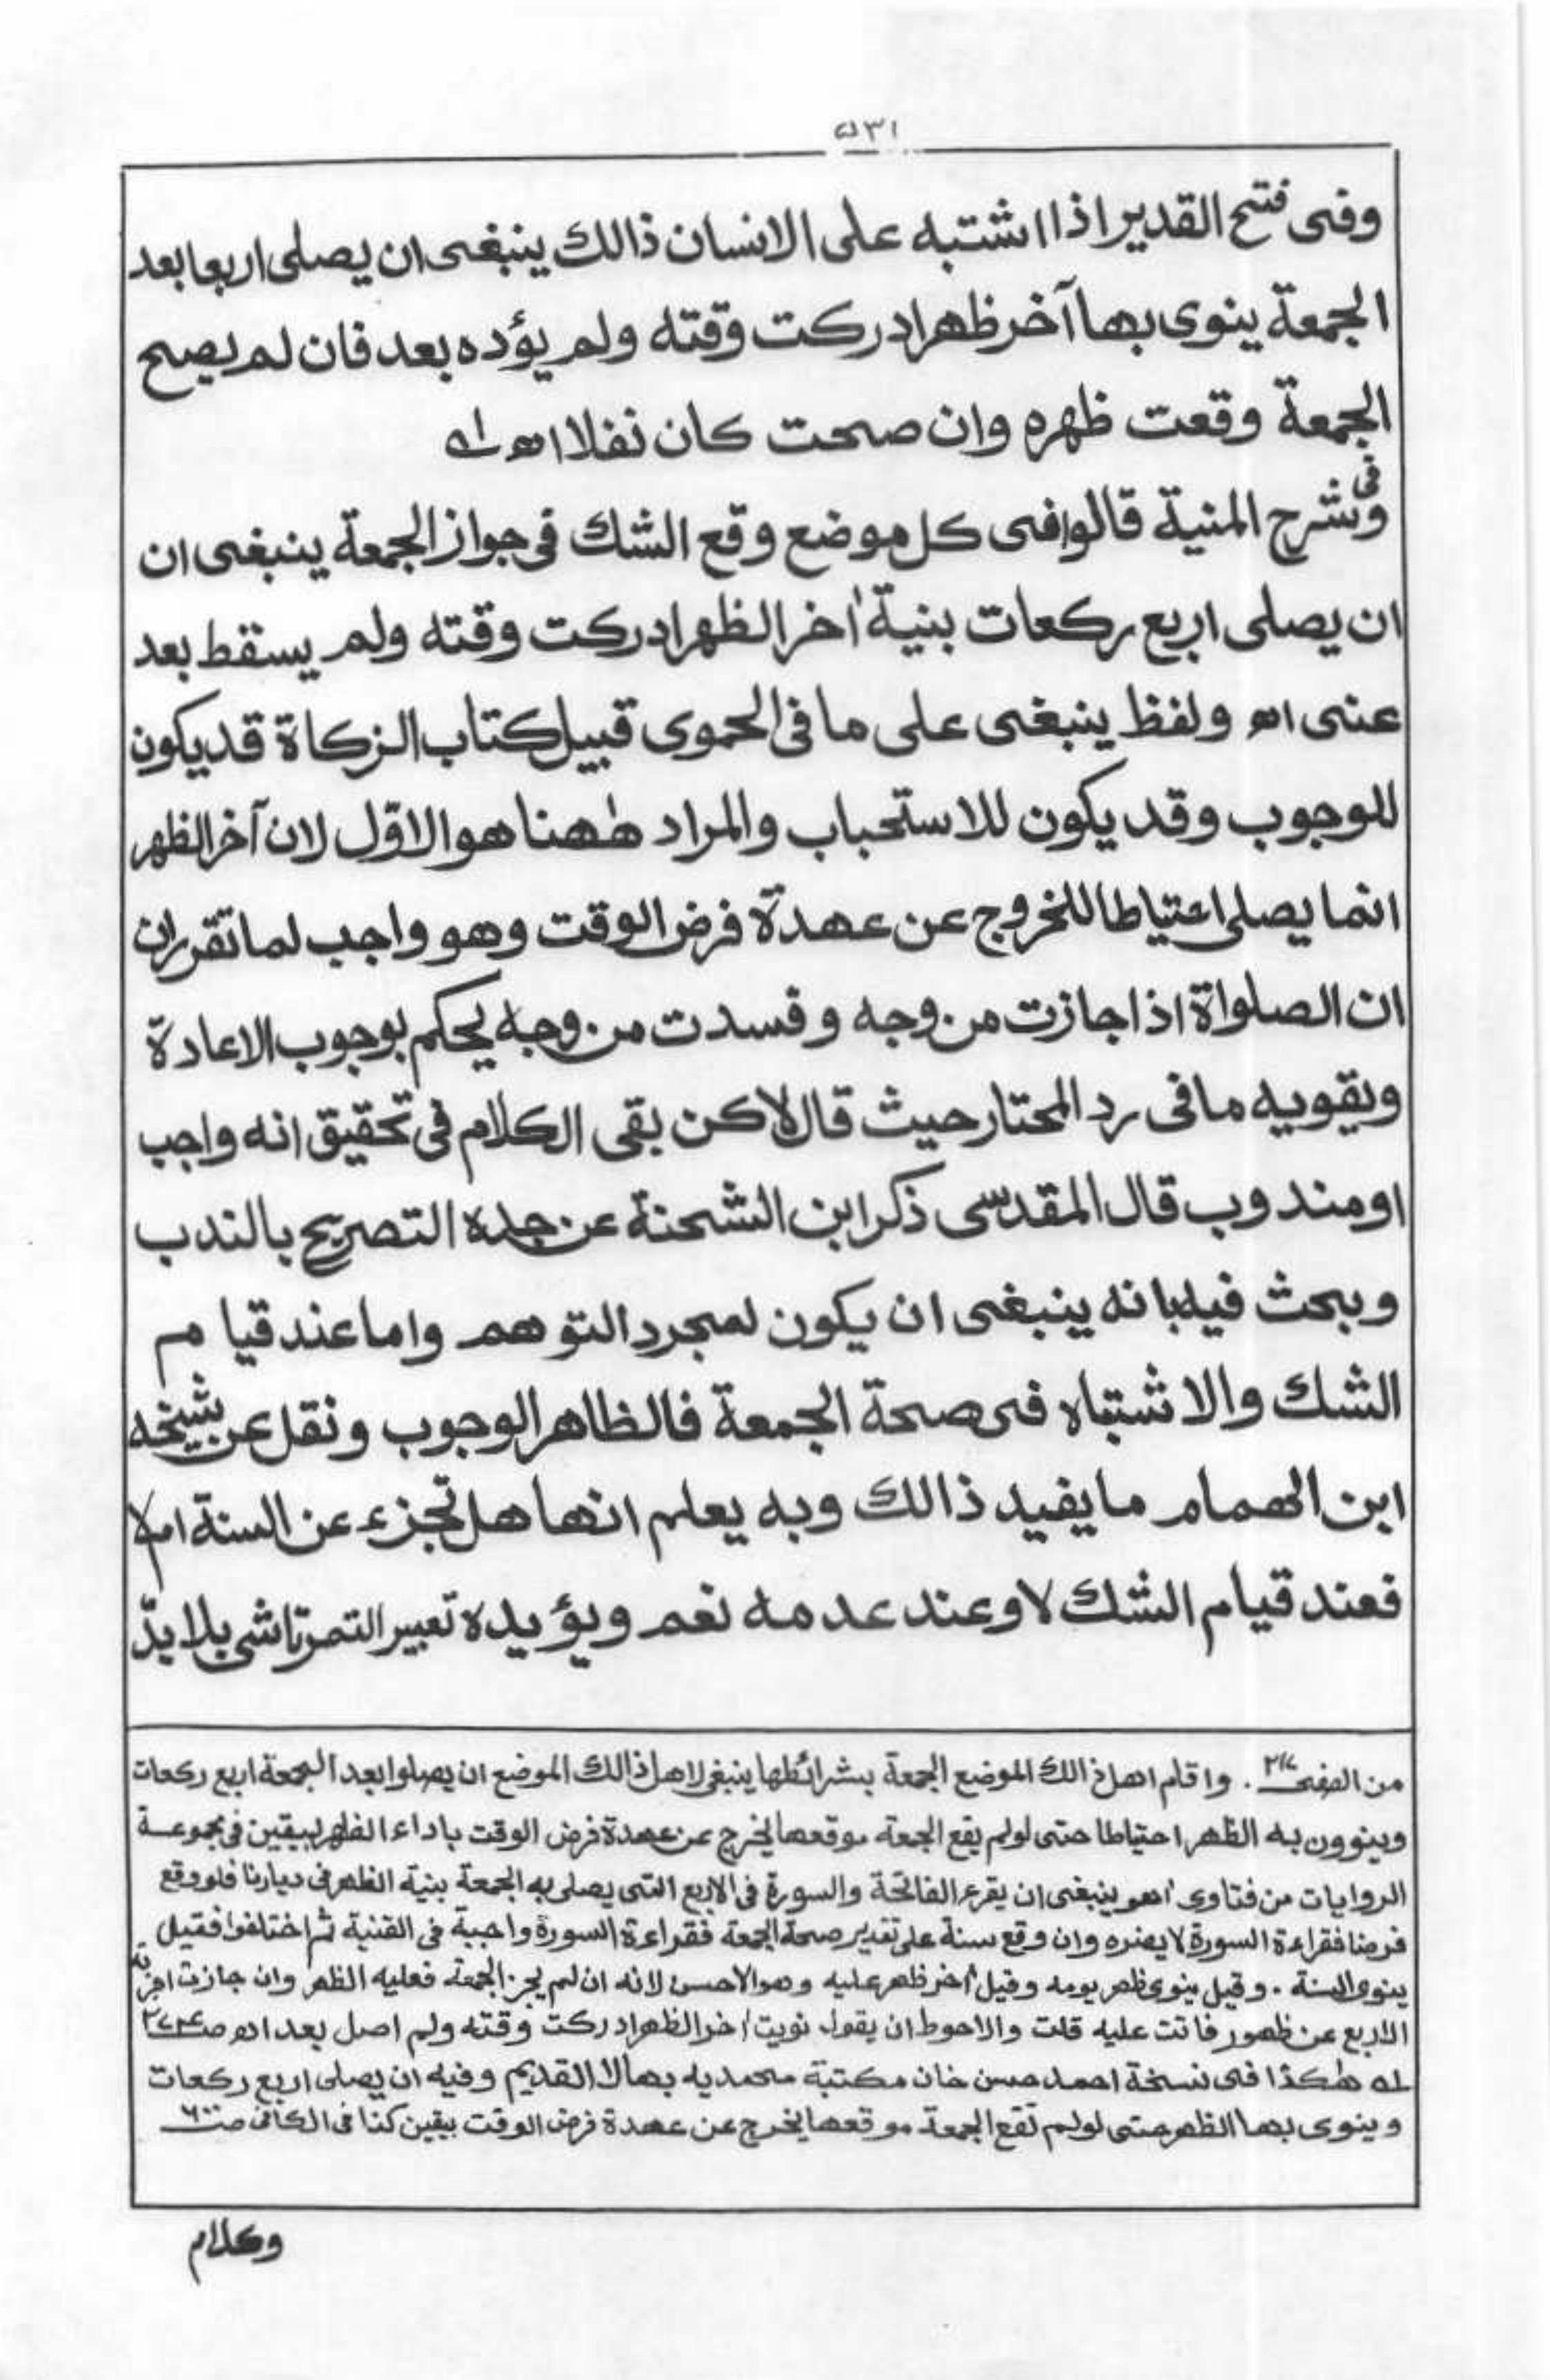 ۵۳۱
وفى فتح القدير اذا اشتبه على الانسان ذالك ينبغى ان يصلى اربعا بعد
الجمعة ينوى بها آخر ظهر ادركت وقته ولم يؤده بعد فان لم يصح
الجمعة وقعت ظهره وان صحت كان نفلا اهـ له
وفى شرح المنية قالوا فى كل موضع وقع الشك فى جواز الجمعة ينبغى ان
ان يصلى اربع ركعات بنية اٰخر الظهر ادركت وقته ولم يسقط بعد
عنى اهـ ولفظ ينبغى على ما فى الحموى قبيل كتاب الزكاة قد يكون
للوجوب وقد يكون للاستحباب والمراد هٰهنا هو الاوّل لان آخر الظهر
انما يصلى احتياطا للخروج عن عهدة فرض الوقت وهو واجب لما تقرر ان
ان الصلواة اذا جازت من وجه وفسدت من وجه يحكم بوجوب الاعادة
ويقويه ما فى رد المحتار حيث قال لاكن بقى الكلام فى تحقيق انه واجب
او مندوب قال المقدسى ذكر ابن الشحنة عن جده التصريح بالندب
وبحث فيه بانه ينبغى ان يكون لمجرد التوهم واما عند قيام
الشك والاشتباه فى صحة الجمعة فالظاهر الوجوب ونقل عن شيخه
ابن الهمام ما يفيد ذالك وبه يعلم انها هل تجزء عن السنة ام لا
فعند قيام الشك لا وعند عدمه نعم ويؤيده تعبير التمرتاشى بلا بدّ
من الصفى . واقام اهل ذالك الموضع الجمعة بشرائطها ينبغى لاهل ذالك الموضع ان يصلوا بعد الجمعة اربع ركعات
وينوون به الظهر احتياطا حتى لو لم يقع الجمعة موقعها يخرج عن عهدة فرض الوقت باداء الظهر بيقين فى مجموعة
الروايات من فتاوى اهو ينبغى ان يقرء الفاتحة والسورة فى الاربع التى يصلى به الجمعة بنية الظهر فى ديارنا فلو وقع
فرضا فقراءة السورة لا يضره وان وقع سنة على تقدير صحة الجمعة فقراءة السورة واجبة فى القنية ثم اختلفوا فقيل
ينوى السنة . وقيل ينوى ظهر يومه وقيل اٰخر ظهر عليه وهو الاحسن لانه ان لم يجز الجمعة فعليه الظهر وان جازت اجزته
الاربع عن ظهور فاتت عليه قلت والاحوط ان يقول نويت اٰخر الظهر ادركت وقته ولم اصل بعد اهـ
له هٰكذا فى نسخة احمد حسن خان مكتبة محمديه بها لا القديم وفيه ان يصلى اربع ركعات
وينوى بها الظهر حتى لو لم تقع الجمعة موقعها يخرج عن عهدة فرض الوقت بيقين كذا فى الكافى
وكلام